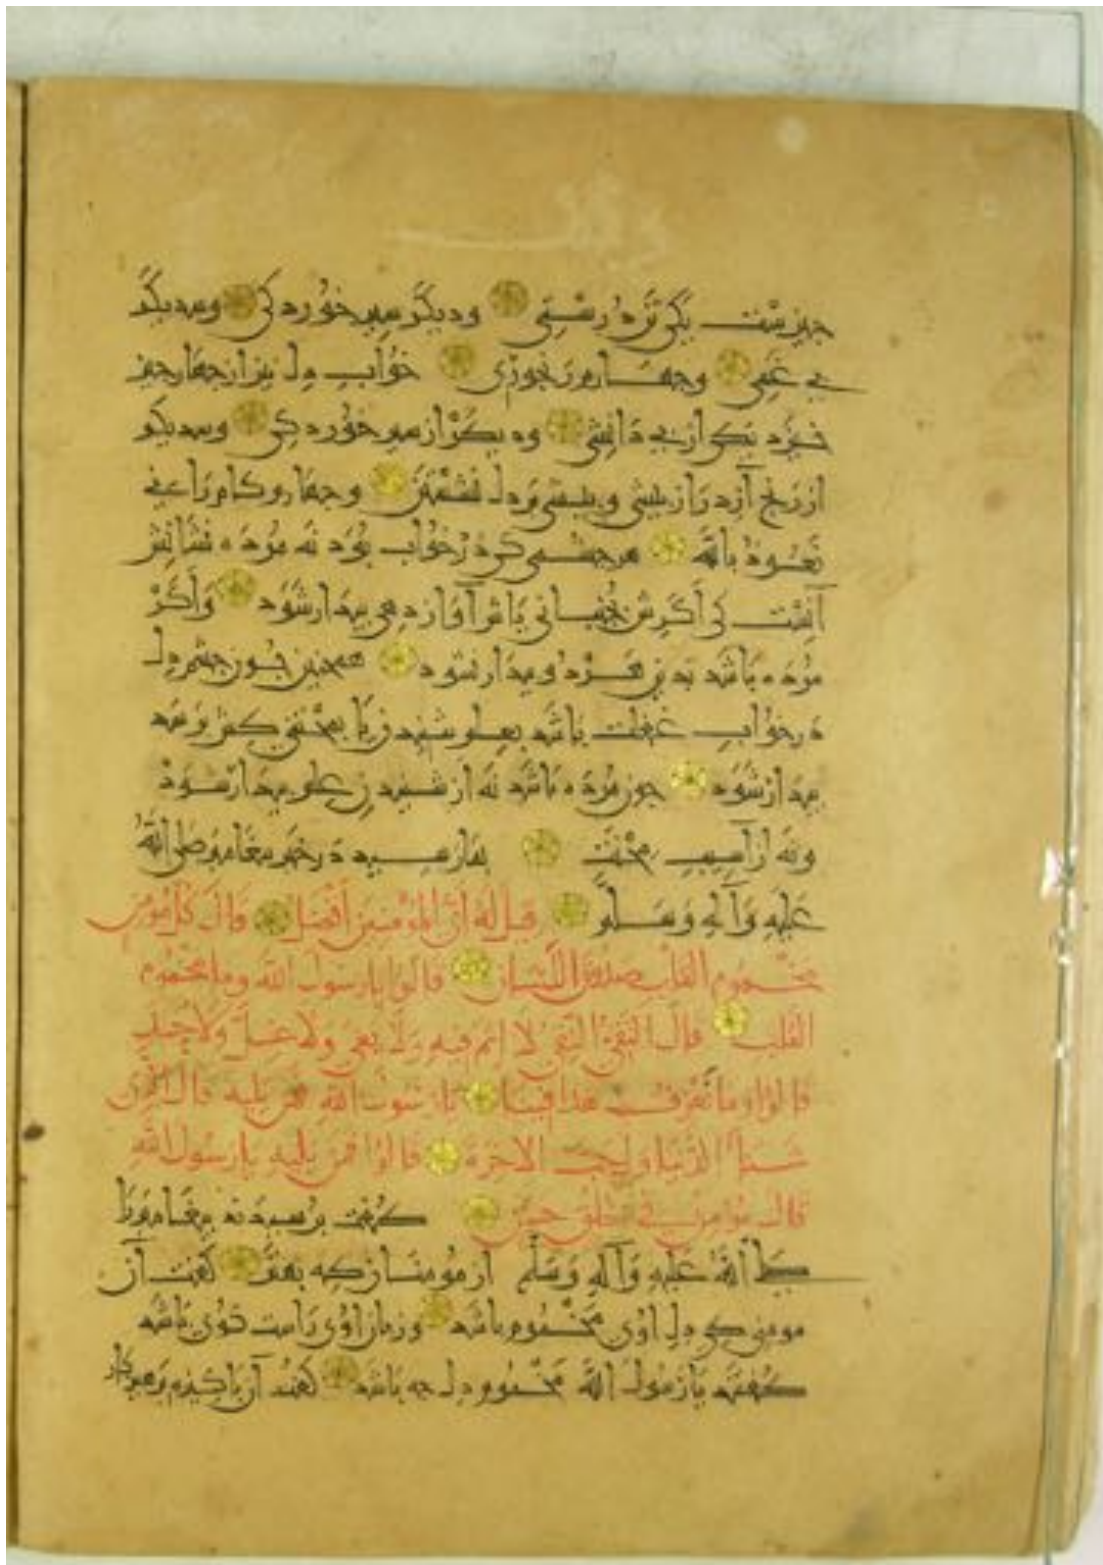 چیزست یکی تن درستی ودیگر سیر خوردگی وسدیگر
بی غمی وچهارم رنجوری خواب دل نیز از چهار چیز
خیزد یکی از بی دانشی ودیگر از سیر خوردگی وسدیگر
از رنج آزد واز بیشی وبیشی بر دل وچهارم کام راعی
نعوذ بالله هر چشمی کی در خواب بود نه مرده نشانش
آنست کی اگرش جنبانی یاش آواز دهی بیدار شود واگر
مرده باشد بدین هر دو بیدار نشود همچنین چون چشم دل
در خواب غفلت باشد بعلم شنیدن یا بمحنتی کش برسد
بیدار شود چون مرده باشد نه از شنیدن علم بیدار شود
ونه از آسیب محنت بما رسید در خبر پیغامبر صلی الله
علیه وآله وسلم قيل له أي المؤمنين أفضل قال كل مؤمن
مخموم القلب صدوق اللسان قالوا يا رسول الله وما مخموم
القلب قال التقي النقي لا إثم فيه ولا بغي ولا غل ولا حسد
قالوا وما نعرف هذا فينا يا رسول الله فمن يليه قال الذين
الدنيا الآخرة قالوا فمن يليه يا رسول الله
قال مؤمن في خلق حسن گفت پرسیدند پیغامبر را
صلی الله علیه وآله وسلم از مومنان که بهتر گفت آن
مومنی کی دل اوی مخموم باشد وزبان اوی راست گوی باشد
گفتند یا رسول الله مخموم دل چه باشد گفت آن پاکیزه پرهیزکار